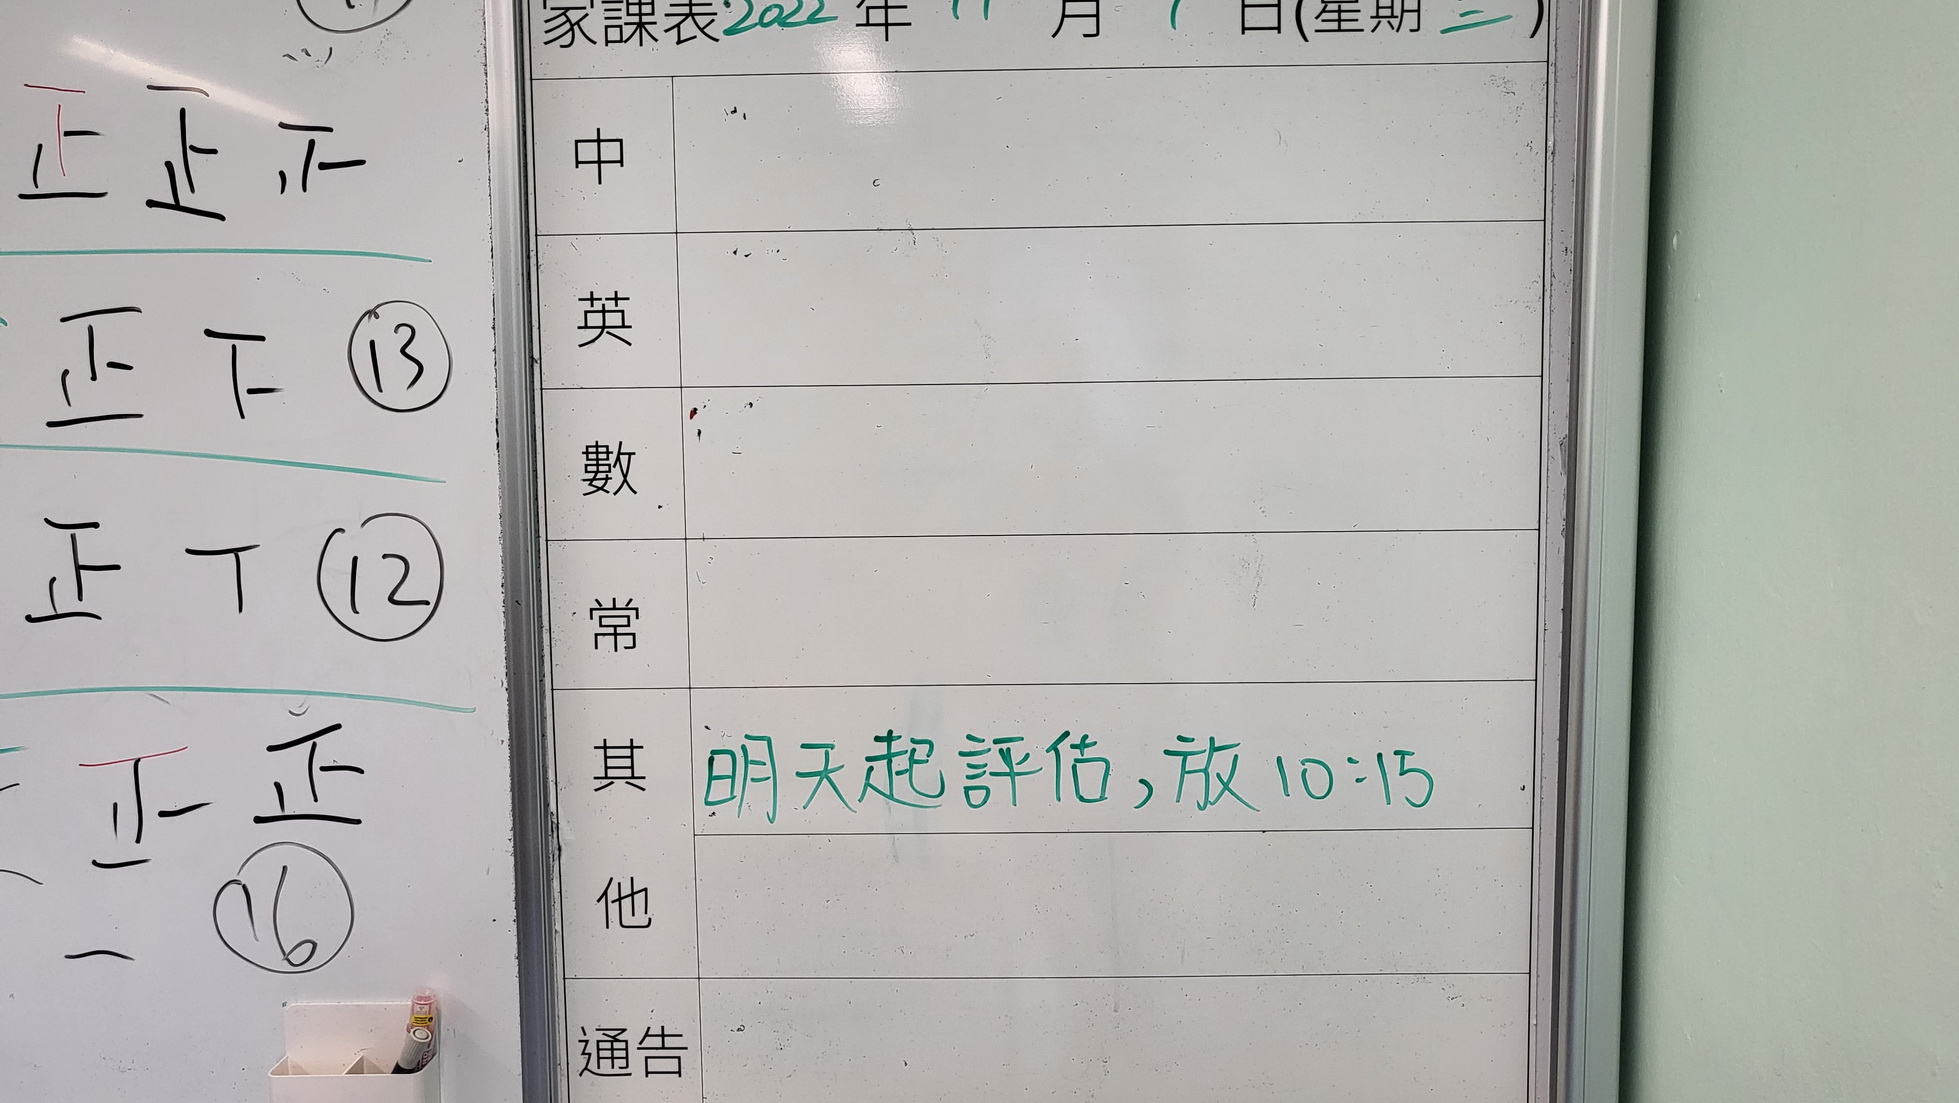 正 正 正
正 下 13
正 丅 12
正 正
一 16
家課表 2022 年 11 月 日(星期 )
中
英
數
常
其他
明天起評估,放10:15
通告